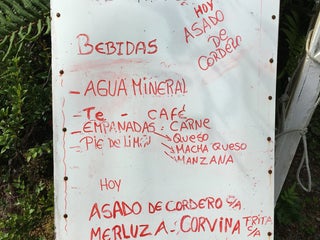 HOY
ASADO
DE
CORDERO
BEBIDAS
- AGUA MINERAL
- Te - CAFÉ
- EMPANADAS: CARNE
QUESO
MACHA QUESO
MANZANA
- Pie de Limón
HOY
ASADO DE CORDERO S/A
MERLUZA - CORVINA FRITA S/A